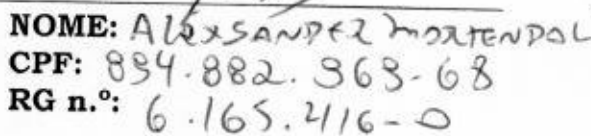 NOME: ALEXSANDER MORTENDAL
CPF: 894.882.969-68
RG n.º: 6.165.416-0